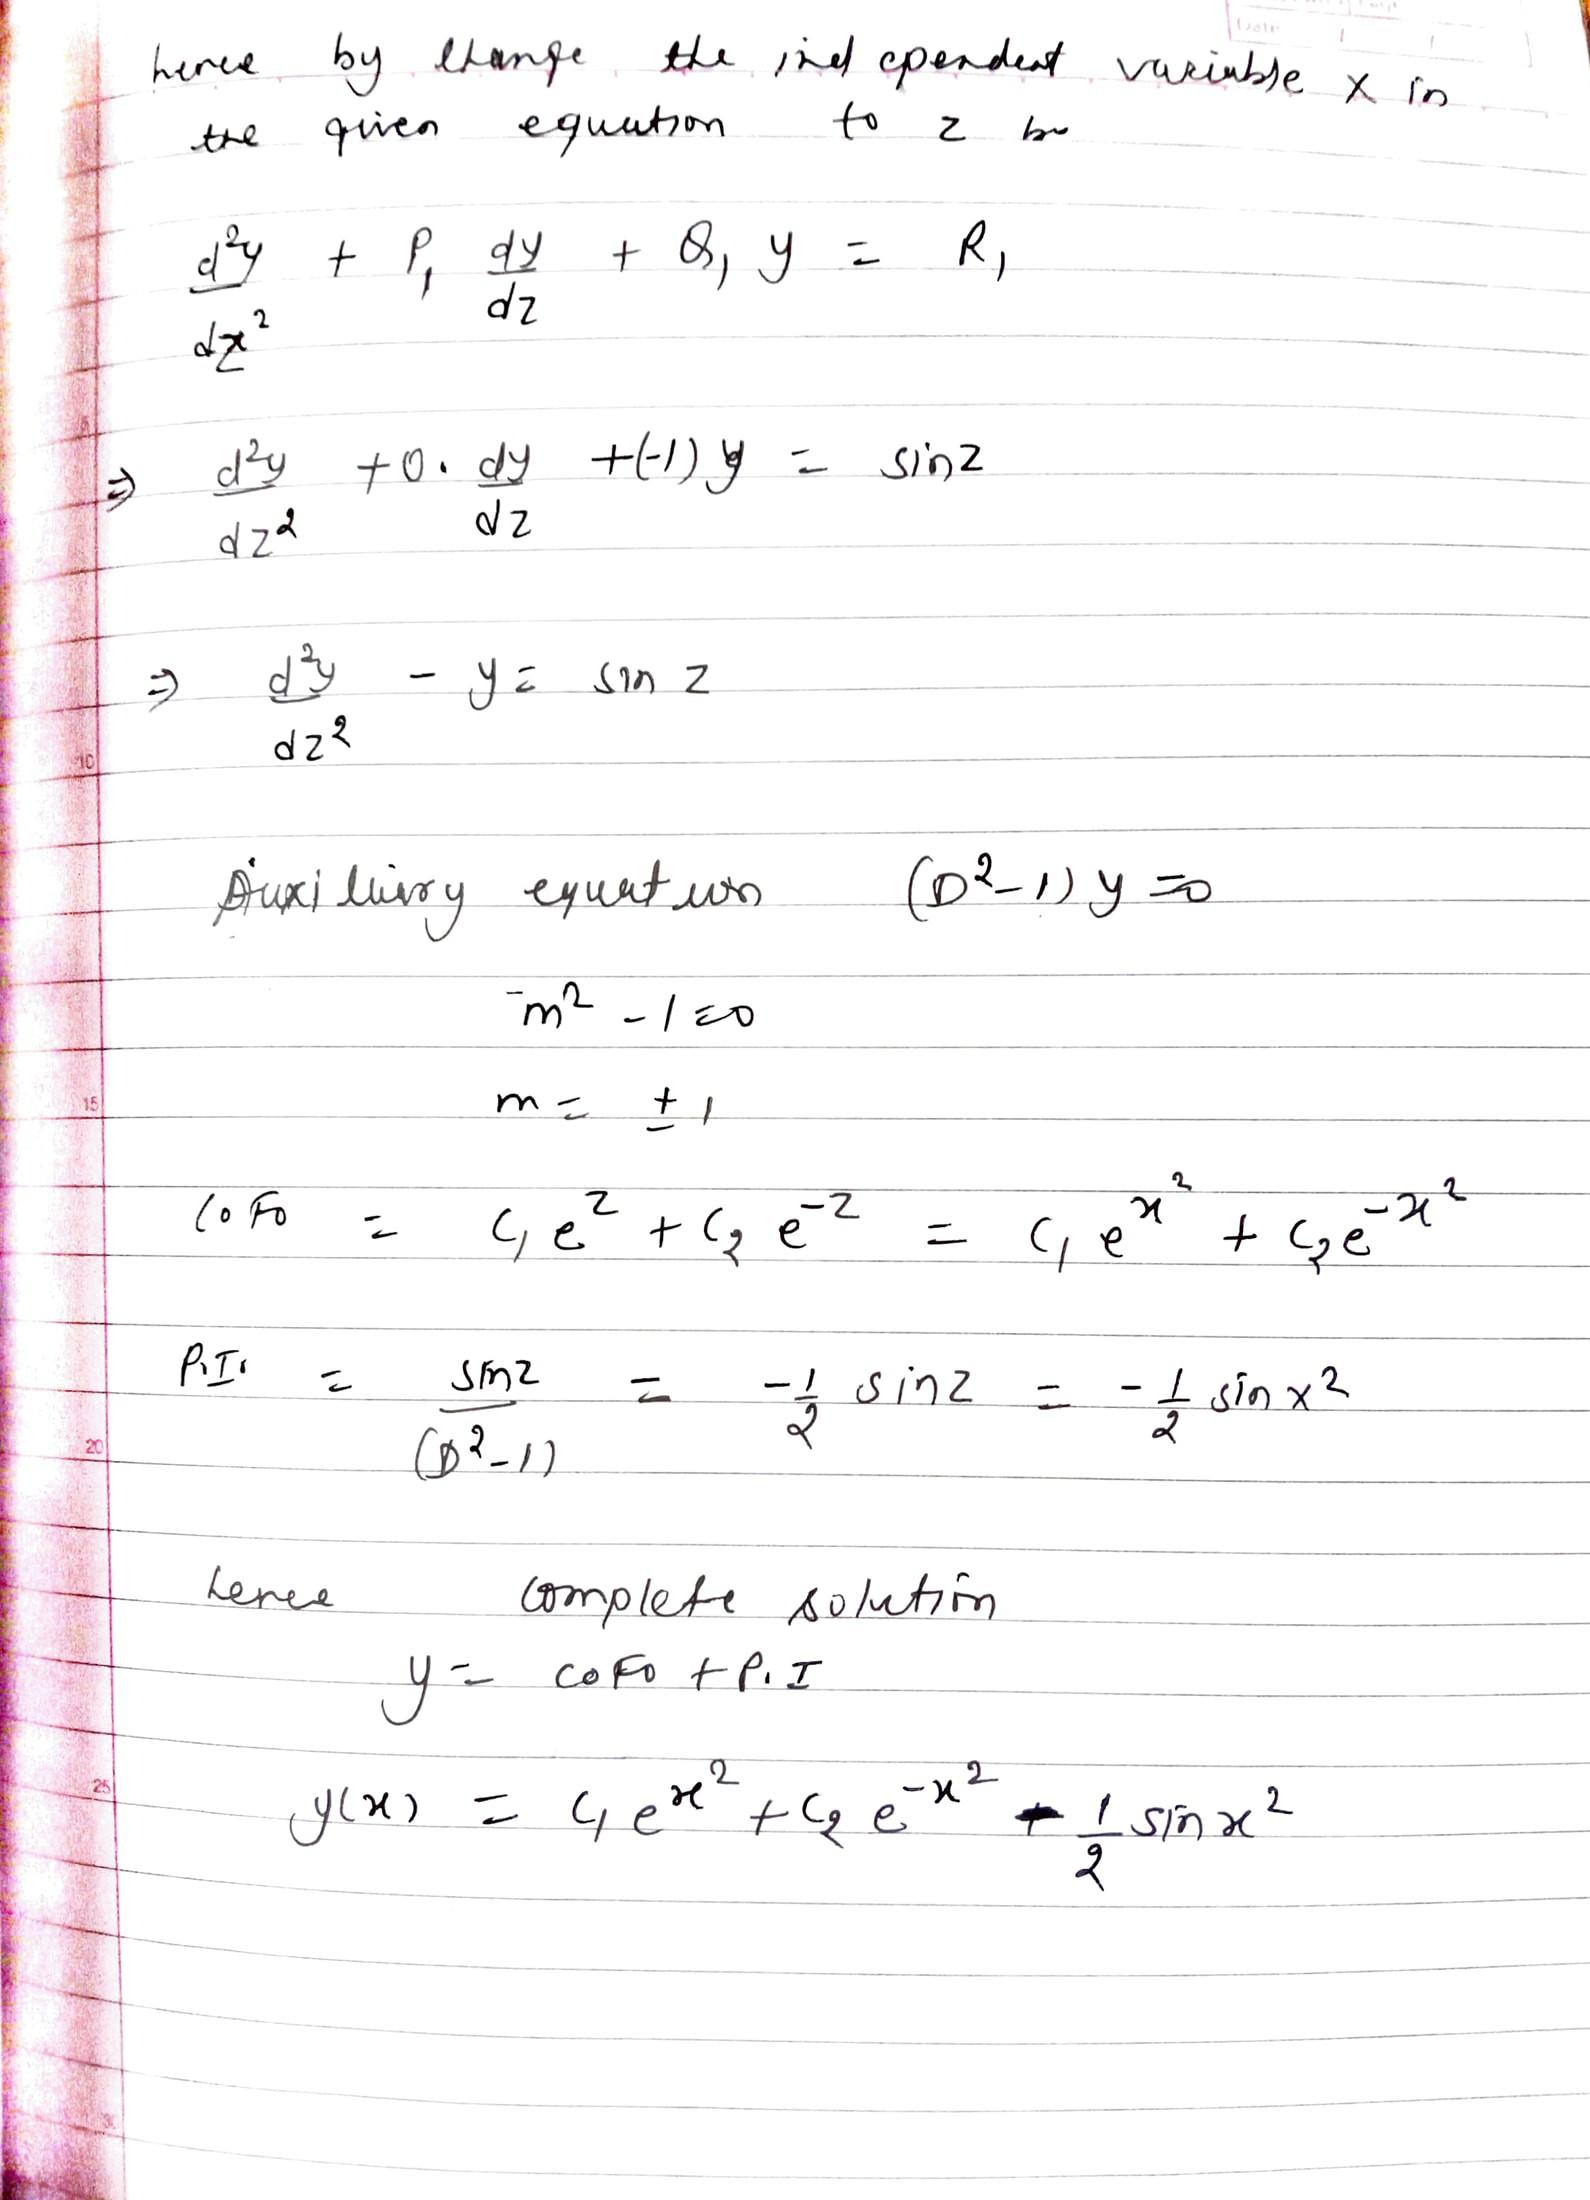 Date
hence by change the independent variable x in
the given equation to z be
d²y/dz² + P₁ dy/dz + Q₁ y = R₁
5
⇒ d²y/dz² + 0. dy/dz + (-1) y = sin z
⇒ d²y/dz² - y = sin z
10
Auxilliary equation (D²-1) y = 0
m² - 1 = 0
15
m = ± 1
C.F. = C₁ e^z + C₂ e^-z = C₁ e^x² + C₂ e^-x²
P.I. = sin z/(D²-1) = -1/2 sin z = -1/2 sin x²
20
hence complete solution
y = C.F. + P.I
25
y(x) = C₁ e^x² + C₂ e^-x² - 1/2 sin x²